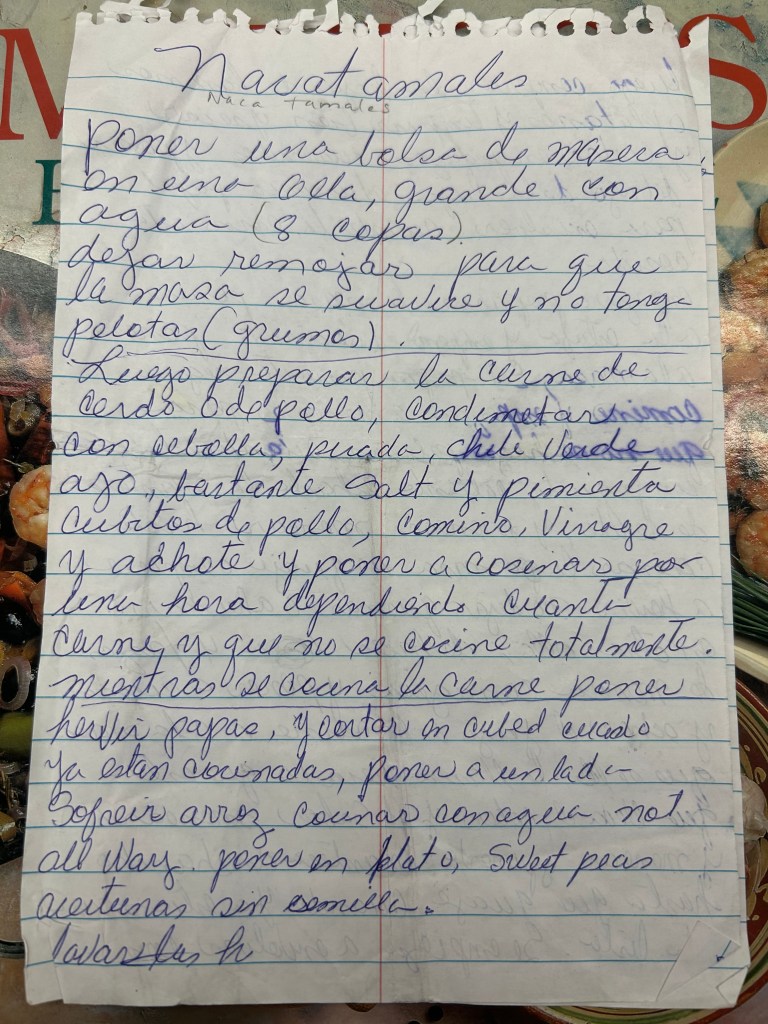 Nacatamales
Naca tamales
poner una bolsa de maseca,
en una olla, grande con
agua (8 copas).
dejar remojar para que
la masa se suavice y no tenga
pelotas (grumos).
Luego preparar la carne de
cerdo o de pollo, condimetar
con cebolla, picada, chile verde
ajo, bastante Salt y pimienta
cubitos de pollo, comino, Vinagre
y achote y poner a cosinar por
una hora dependiendo cuanta
carne, y que no se cocine totalmente.
mientras se cocina la carne poner
hervir papas, y cortar en cubed cuado
ya estan cocinadas, poner a un lado
Sofreir arroz cocinar con agua not
all Way. poner en plato, Sweet peas
aceitunas sin semilla.
lavar las h